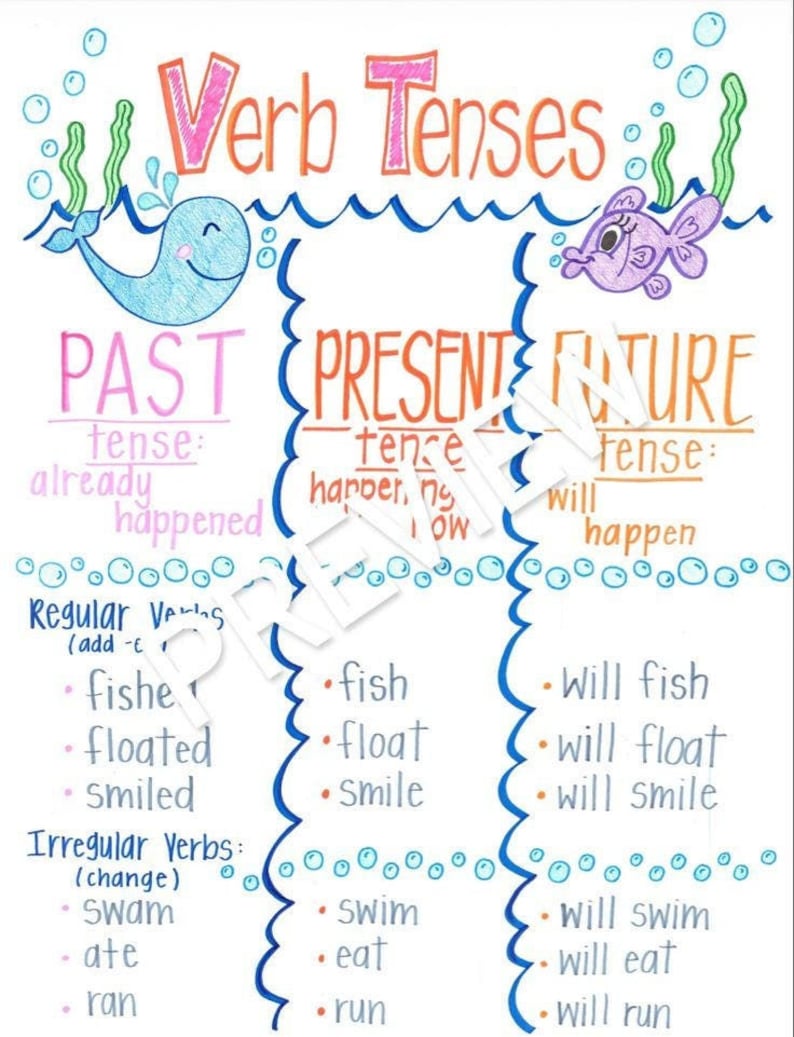 Verb Tenses
PAST
tense:
already
happened
PRESENT
tense
happening
now
FUTURE
tense:
will
happen
PREVIEW
Regular Verbs
(add
• fished
• floated
• smiled
• fish
• float
• smile
• will fish
• will float
• will smile
Irregular Verbs:
(change)
• swam
• ate
• ran
• swim
• eat
• run
• will swim
• will eat
• will run